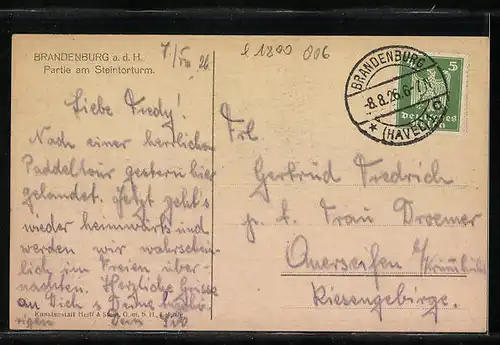 BRANDENBURG a. d. H.
Partie am Steintorturm.
£1800 006
Liebe Fredy!
Nach einer herrlichen
Paddeltour gestern hier
gelandet. Jetzt geht's
wieder heimwärts und
werden wir wahrschein-
lich im Freien über-
nachten. Herzliche Grüsse
an Dich & Deine Angehö-
rigen
Kunstanstalt
BRANDENBURG
-8.8.26.6-7
* (HAVEL)
5
Deutsches
Frl.
Gertrud Fredrich
p. A. Frau Droemer
Querseifen b/Krummhübel
Riesengebirge.